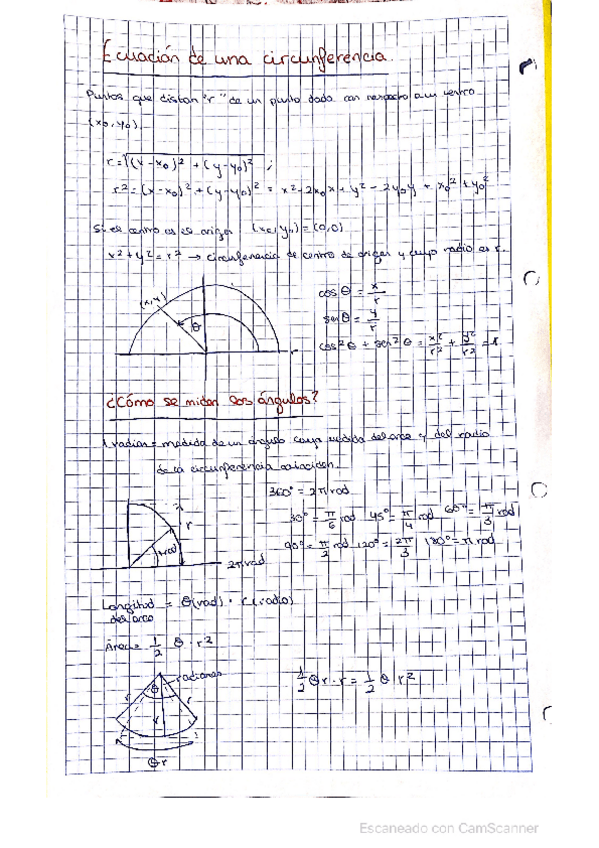 Ecuación de una circunferencia.
Puntos que distan "r" de un punto dado con respecto a un centro
(x₀, y₀).
r = √(x-x₀)² + (y-y₀)² ;
r² = (x-x₀)² + (y-y₀)² = x² - 2x₀x + y² - 2y₀y + x₀² + y₀²
Si el centro es el origen (x₀, y₀) = (0,0)
x² + y² = r² → circunferencia de centro de origen y cuyo radio es r.
(x,y)
θ
r
cos θ = x/r
sen θ = y/r
cos² θ + sen² θ = x²/r² + y²/r² = 1
¿Cómo se miden los ángulos?
1 radián = medida de un ángulo cuya medida del arco y del radio
de la circunferencia coinciden.
360° = 2π rad
30° = π/6 rad 45° = π/4 rad 60° = π/3 rad
90° = π/2 rad 120° = 2π/3 180° = π rad
r
1 rad
2π rad
Longitud = θ(rad) · r(radio)
del arco
Área = 1/2 θ · r²
radianes
θ
r
r
r
θr
1/2 θr · r = 1/2 θ r²
Escaneado con CamScanner